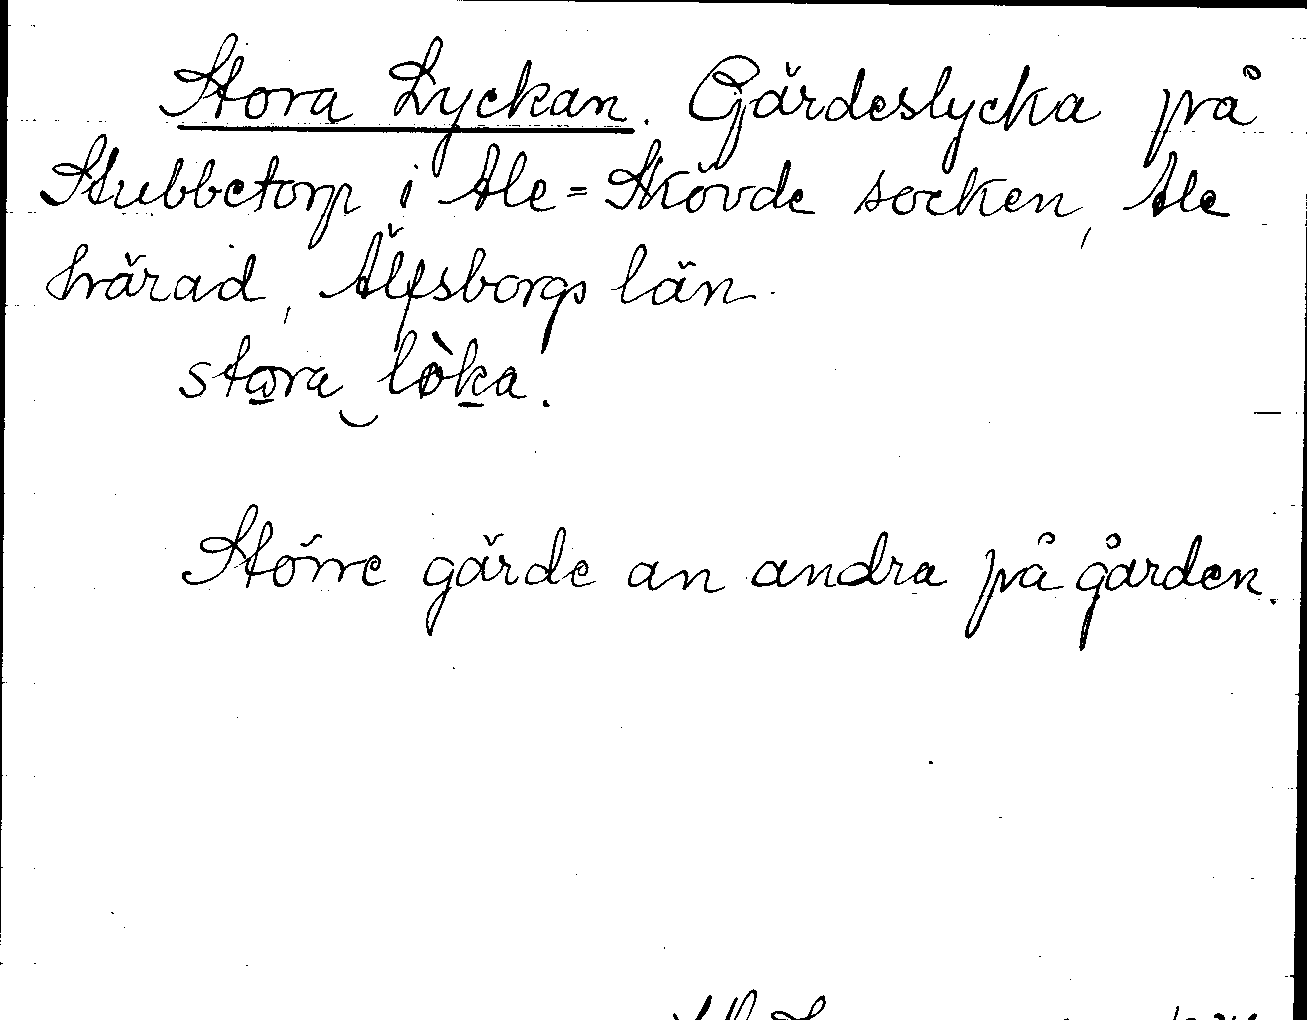 Stora Lyckan. Gärdeslycka på
Stubbetorp i Ale=Skövde socken, Ale
härad, Älfsborgs län.
stora löka.
Större gärde an andra på gården.